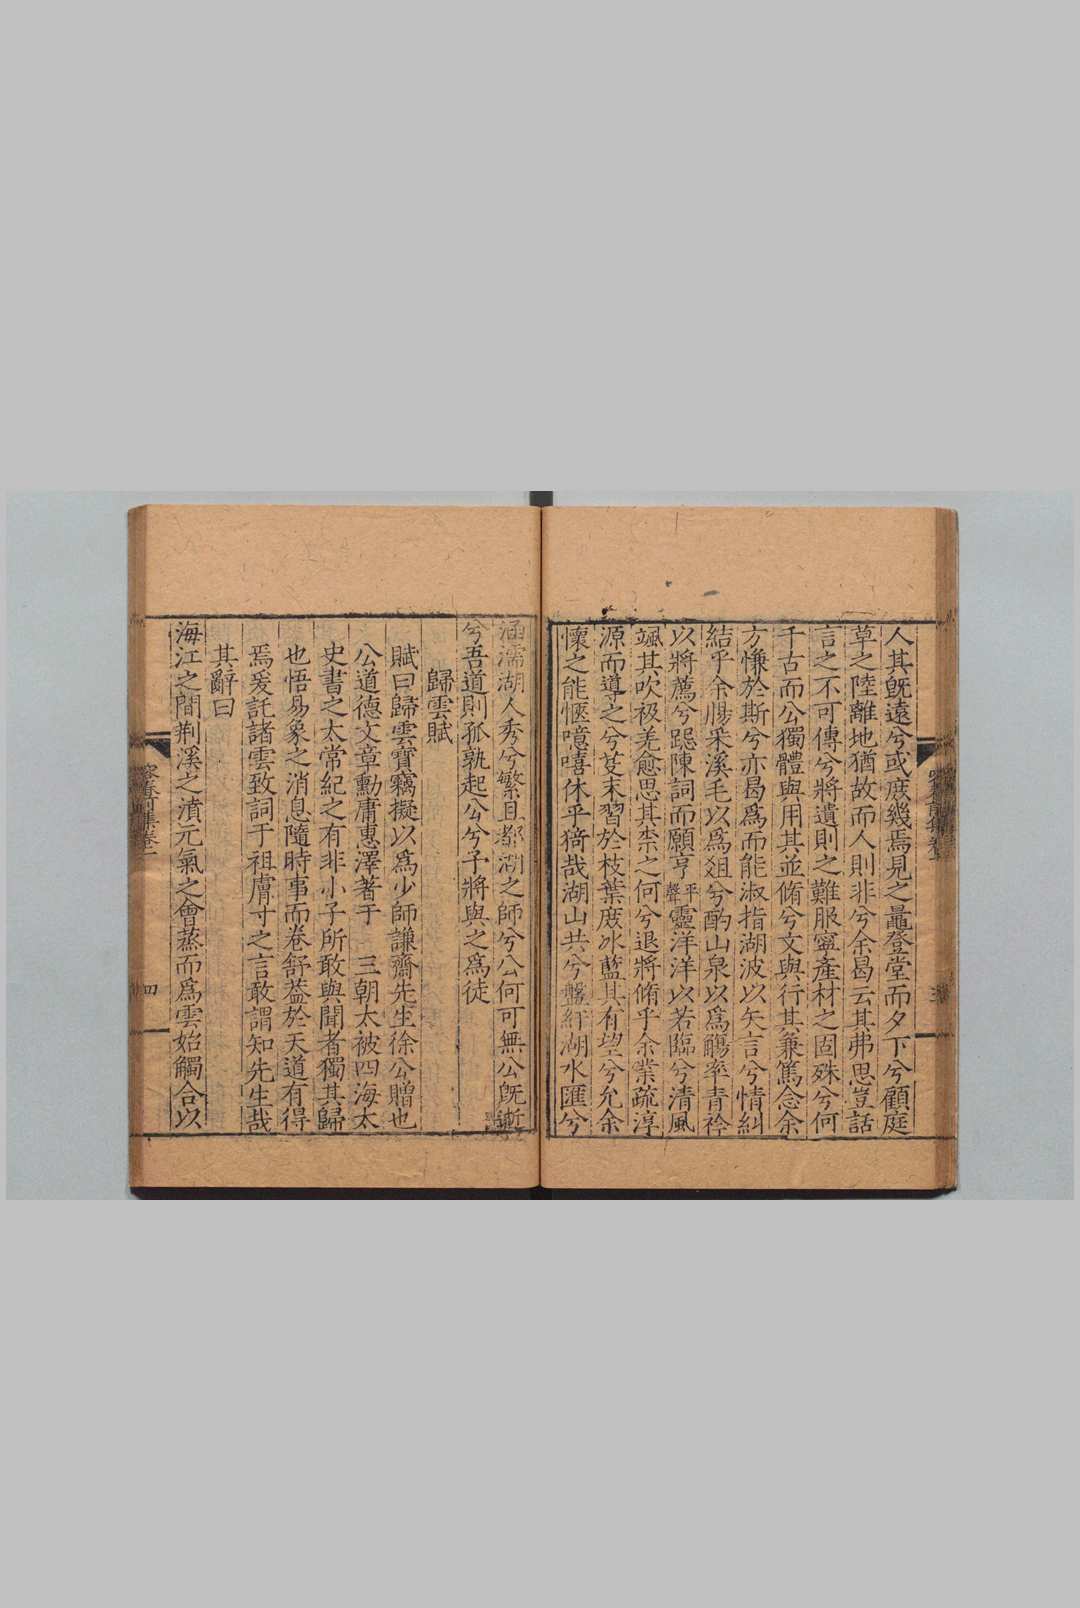 人其旣遠兮或庶幾焉見之鼂登堂而夕下兮顧庭
草之陸離地猶故而人則非兮余曷云其弗思豈話
言之不可傳兮將遺則之難服寧產材之固殊兮何
千古而公獨體與用其並脩兮文與行其兼篤念余
方慊於斯兮亦曷爲而能淑指湖波以矢言兮情糾
結乎余膓采溪毛以爲俎兮酌山泉以爲觴率青衿
以將薦兮跽陳詞而願亨平聲靈洋洋以若臨兮清風
颯其吹衱羌愈思其柰之何兮退將脩乎余業疏淳
源而導之兮芟末習於枝葉庶冰藍其有望兮允余
懷之能愜噫嘻休乎猗哉湖山共兮盤紆湖水匯兮
涵濡湖人秀兮繁且都湖之師兮公何可無公旣逝
兮吾道則孤孰起公兮予將與之爲徒
歸雲賦
賦曰歸雲寶竊擬以爲少師謙齋先生徐公贈也
公道德文章勳庸惠澤著于 三朝太被四海太
史書之太常紀之有非小子所敢與聞者獨其歸
也悟易象之消息隨時事而卷舒葢於天道有得
焉爰託諸雲致詞于祖膚寸之言敢謂知先生哉
其辭曰
海江之間荆溪之濆元氣之會蒸而爲雲始觸合以
四